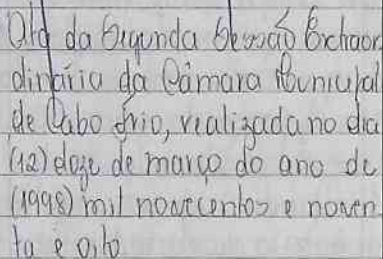 Ata da Segunda Sessão Extraor
dinária da Câmara Municipal
de Cabo Frio, realizada no dia
(12) doze de março do ano de
(1998) mil novecentos e noven
ta e oito